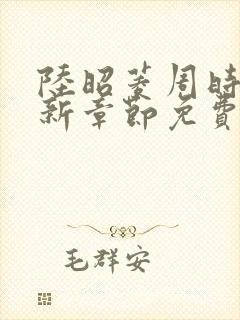 陸昭菱周時
新章節免費
毛群安